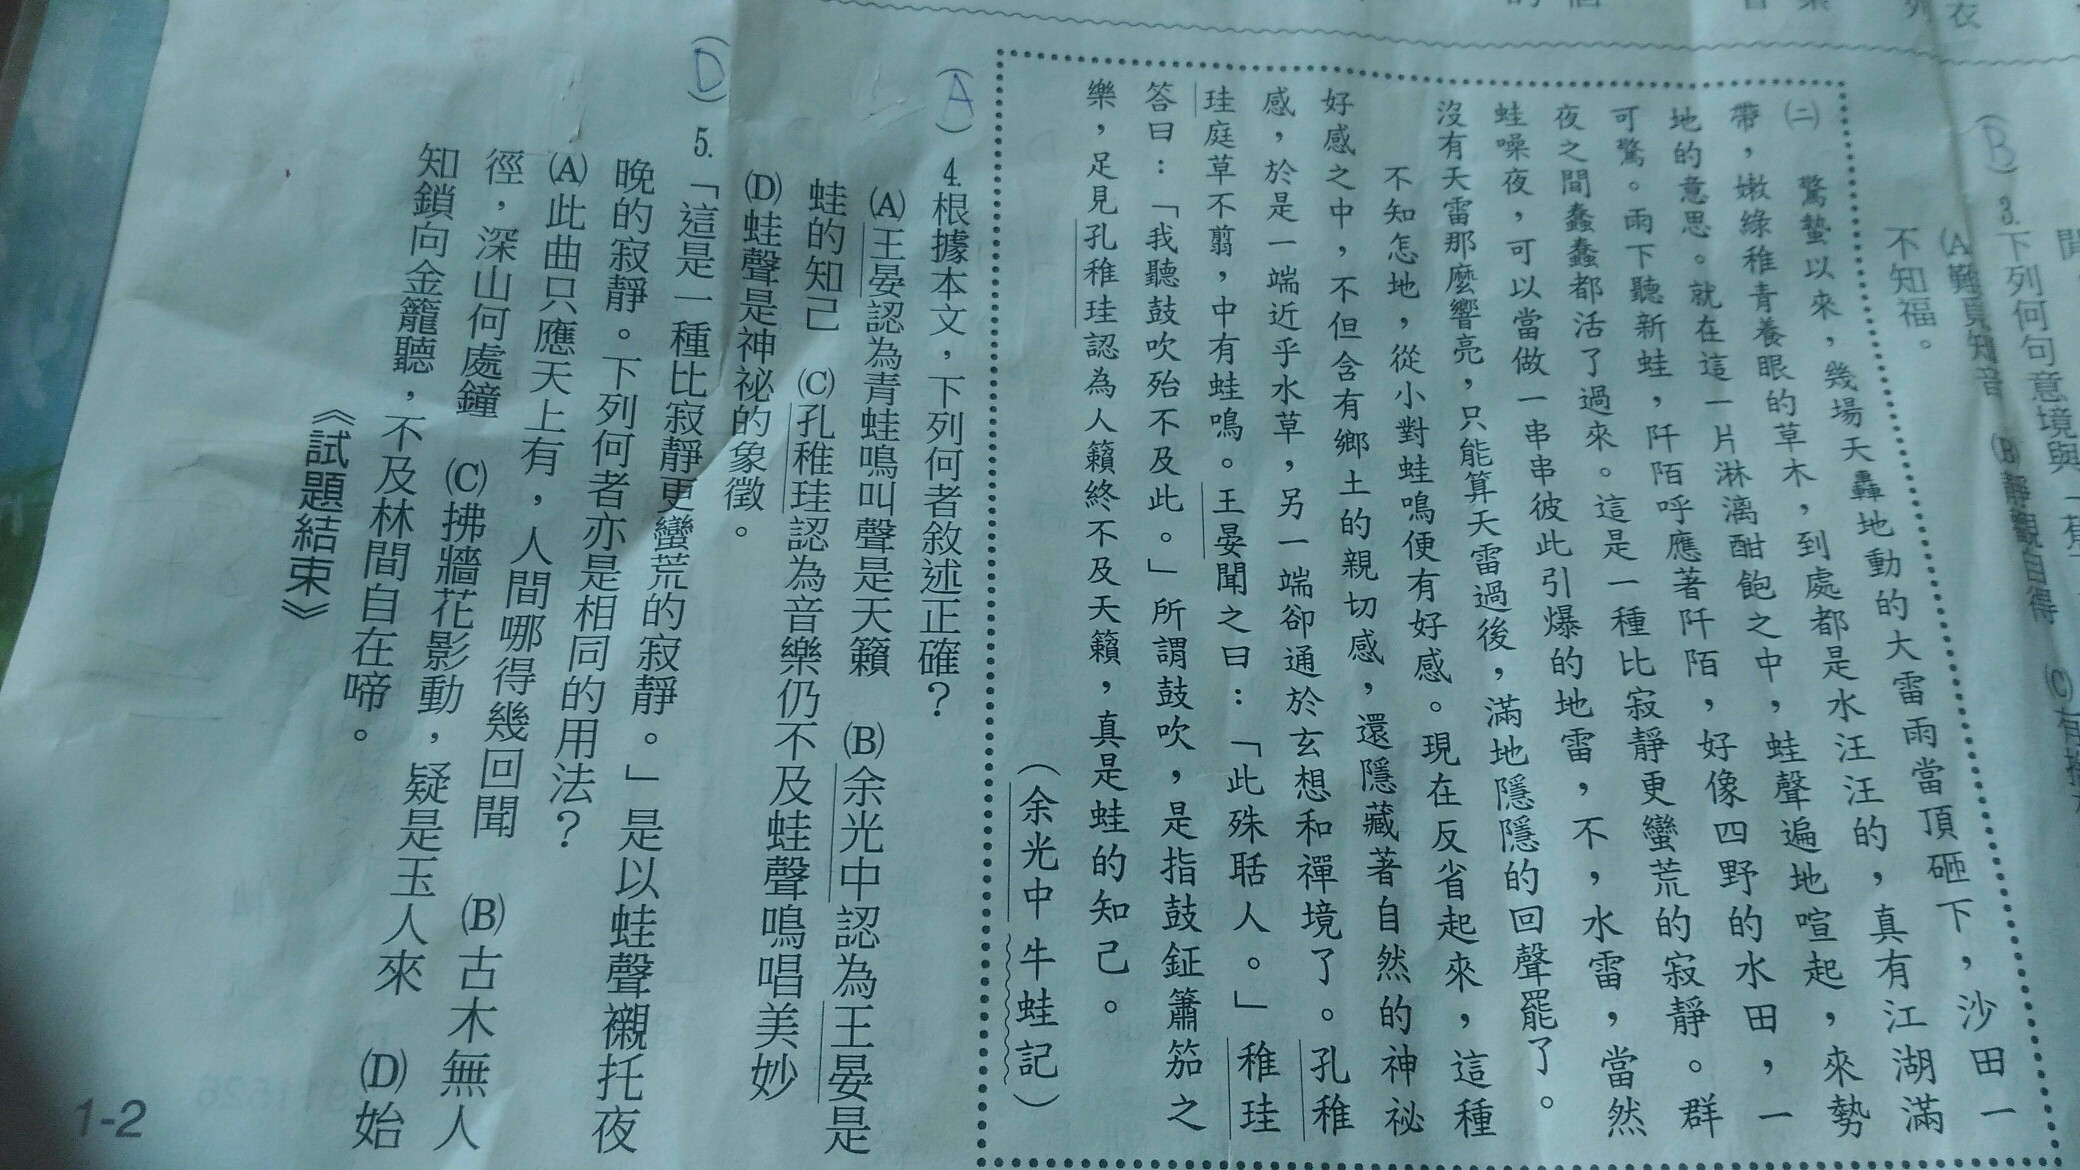 (B)3.下列何句意境與
不知福。
㈡　驚蟄以來，幾場天轟地動的大雷雨當頂砸下，沙田一
帶，嫩綠稚青養眼的草木，到處都是水汪汪的，真有江湖滿
地的意思。就在這一片淋漓酣飽之中，蛙聲遍地喧起，來勢
可驚。雨下聽新蛙，阡陌呼應著阡陌，好像四野的水田，一
夜之間蠢蠢都活了過來。這是一種比寂靜更蠻荒的寂靜。群
蛙噪夜，可以當做一串串彼此引爆的地雷，不，水雷，當然
沒有天雷那麼響亮，只能算天雷過後，滿地隱隱的回聲罷了。
不知怎地，從小對蛙鳴便有好感。現在反省起來，這種
好感之中，不但含有鄉土的親切感，還隱藏著自然的神祕
感，於是一端近乎水草，另一端卻通於玄想和禪境了。孔稚
珪庭草不翦，中有蛙鳴。王晏聞之曰：「此殊聒人。」稚珪
答曰：「我聽鼓吹殆不及此。」所謂鼓吹，是指鼓鉦簫笳之
樂，足見孔稚珪認為人籟終不及天籟，真是蛙的知己。
（余光中　牛蛙記）
(A)4.根據本文，下列何者敘述正確？
(A)王晏認為青蛙鳴叫聲是天籟　(B)余光中認為王晏是
蛙的知己　(C)孔稚珪認為音樂仍不及蛙聲鳴唱美妙
(D)蛙聲是神祕的象徵。
(D)5.「這是一種比寂靜更蠻荒的寂靜。」是以蛙聲襯托夜
晚的寂靜。下列何者亦是相同的用法？
(A)此曲只應天上有，人間哪得幾回聞　(B)古木無人
徑，深山何處鐘　(C)拂牆花影動，疑是玉人來　(D)始
知鎖向金籠聽，不及林間自在啼。
《試題結束》
1-2